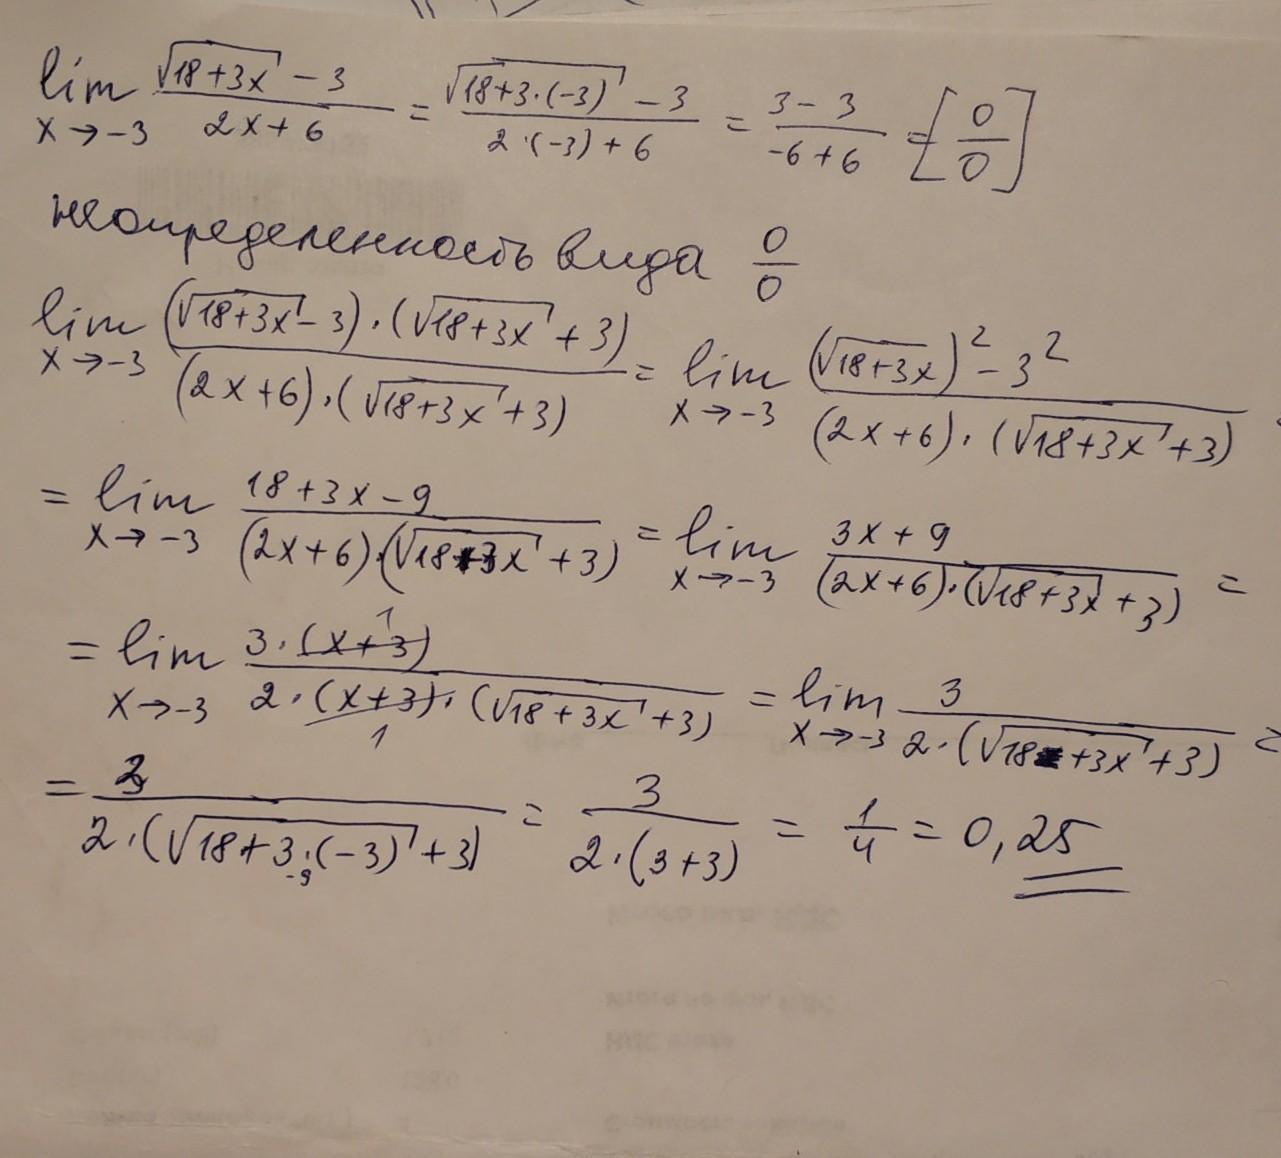 lim x→-3 (√(18+3x) - 3)/(2x+6) = (√(18+3·(-3)) - 3)/(2·(-3)+6) = (3-3)/(-6+6) = [0/0]
неопределенность вида 0/0
lim x→-3 ((√(18+3x) - 3)·(√(18+3x) + 3))/((2x+6)·(√(18+3x)+3)) = lim x→-3 ((√(18+3x))² - 3²)/((2x+6)·(√(18+3x)+3)) =
= lim x→-3 (18+3x-9)/((2x+6)·(√(18+3x)+3)) = lim x→-3 (3x+9)/((2x+6)·(√(18+3x)+3)) =
= lim x→-3 (3·(x+3) 1)/(2·(x+3) 1·(√(18+3x)+3)) = lim x→-3 3/(2·(√(18+3x)+3)) =
= 3/(2·(√(18+3·(-3))+3)) -9 = 3/(2·(3+3)) = 1/4 = 0,25